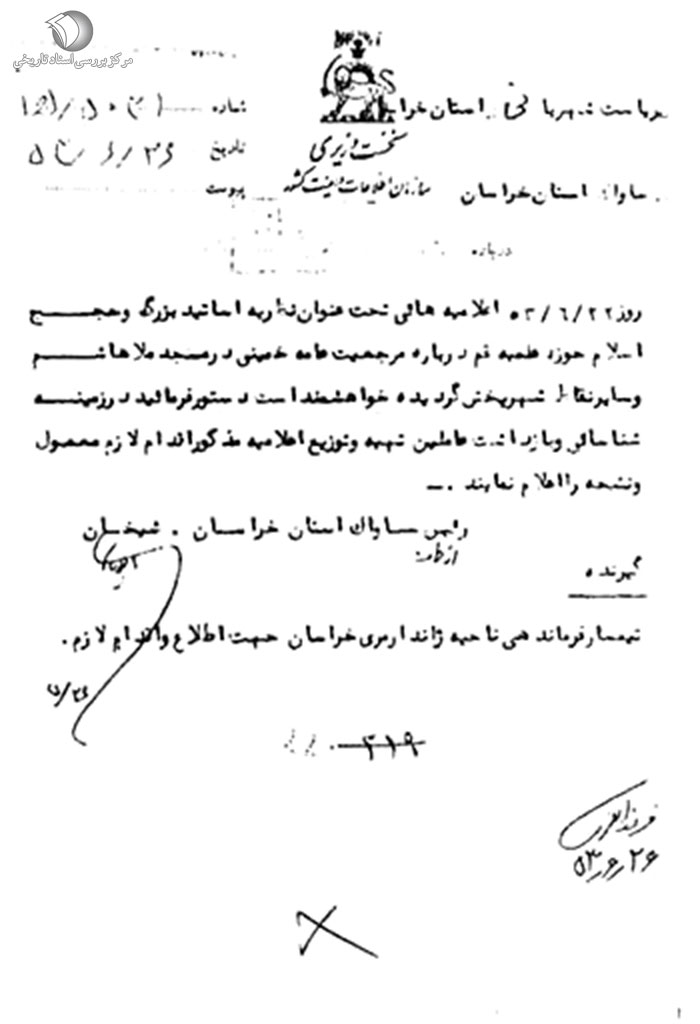 مرکز بررسی اسناد تاریخی
ریاست شهربانی استان خراسان
شماره
نخست وزیری
تاریخ ۲۶/۶/۵۳
سازمان اطلاعات و امنیت کشور
ساواک استان خراسان
پیوست
درباره
روز ۵۳/۶/۲۲ اعلامیه هائی تحت عنوان نداربه اساتید بزرگ وحجج
اسلام حوزه علمیه قم درباره مرجعیت عامه خمینی درمسجد ملاهاشم
وسایرنقاط شهرپخش گردیده خواهشمنداست دستورفرمائید درزمینه
شناسائی وبازداشت عاملین تهیه وتوزیع اعلامیه مذکوراقدام لازم معمول
ونتیجه رااعلام نمایند .ــ
رئیس ساواک استان خراسان . شیخان
از طرف
گیرنده
تیمسارفرماندهی ناحیه ژاندارمری خراسان جهت اطلاع واقدام لازم.
۶/۲۶
۳۱۹
۲۶/۶/۵۳